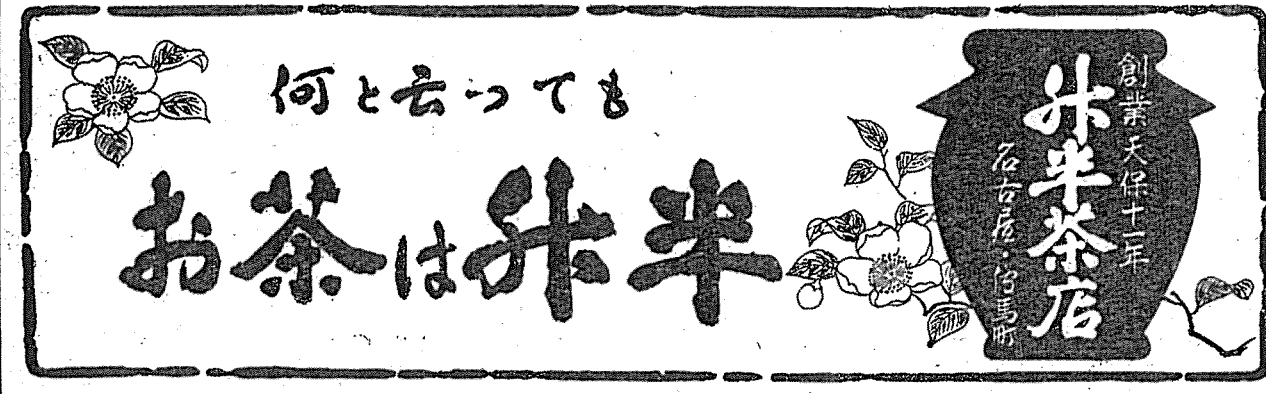 何と云っても
お茶は升半
創業天保十一年
升半茶店
名古屋・伝馬町